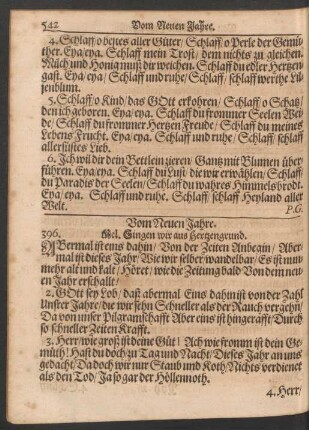 542 Vom Neuen Jahre.
4. Schlaff/ o bestes aller Güter/ Schlaff/ o Perle der Gemü-
ther. Eya/eya. Schlaff mein Trost/ dem nichts zu gleichen.
Milch und Honig muß dir weichen. Schlaff du edler Hertzen
gast. Eya/ eya/ Schlaff und ruhe/ Schlaff/ schlaff werthe Li-
ljenblum.
5. Schlaff/ o Kind/ das GOtt erkohren/ Schlaff/ o Schatz/
den ich geboren. Eya/eya. Schlaff du frommer Seelen Wei-
de/ Schlaff du frommer Hertzen Freude/ Schlaff du meines
Lebens Frucht. Eya/eya. Schlaff und ruhe/ Schlaff/ schlaff
allersüstes Lieb.
6. Ich wil dir dein Bettlein zieren/ Gantz mit Blumen über-
führen. Eya/eya. Schlaff du Lust/ die wir erwählen/ Schlaff/
du Paradis der Seelen/ Schlaff du wahres Himmelsbrodt.
Eya/ eya. Schlaff und ruhe. Schlaff/ schlaff Heyland aller
Welt. P.G.
Vom Neuen Jahre.
396. Mel. Singen wir aus Hertzengrund.
ABermal ist eins dahin/ Von der Zeiten Anbegin/ Aber-
mal ist dieses Jahr/ Wie wir selber/ wandelbar/ Es ist nun-
mehr alt und kalt/ Höret/ wie die Zeitung bald Von dem neu-
en Jahr erschallt/
2. GOtt sey Lob/ daß abermal Eins dahin ist von der Zahl
Unsrer Jahre/ die wir sehn Schneller als der Rauch vergehn/
Da von unser Pilgramschafft Aber eins ist hingerafft/ Durch
so schneller Zeiten Krafft.
3. Herr/ wie groß ist deine Güt! Ach wie fromm ist dein Ge-
müth! Hast du doch zu Tag und Nacht/ Dieses Jahr an uns
gedacht/ Da doch wir nur Staub und Koth/ Nichts verdienet
als den Tod/ Ja so gar der Höllennoth.
4. Herr/